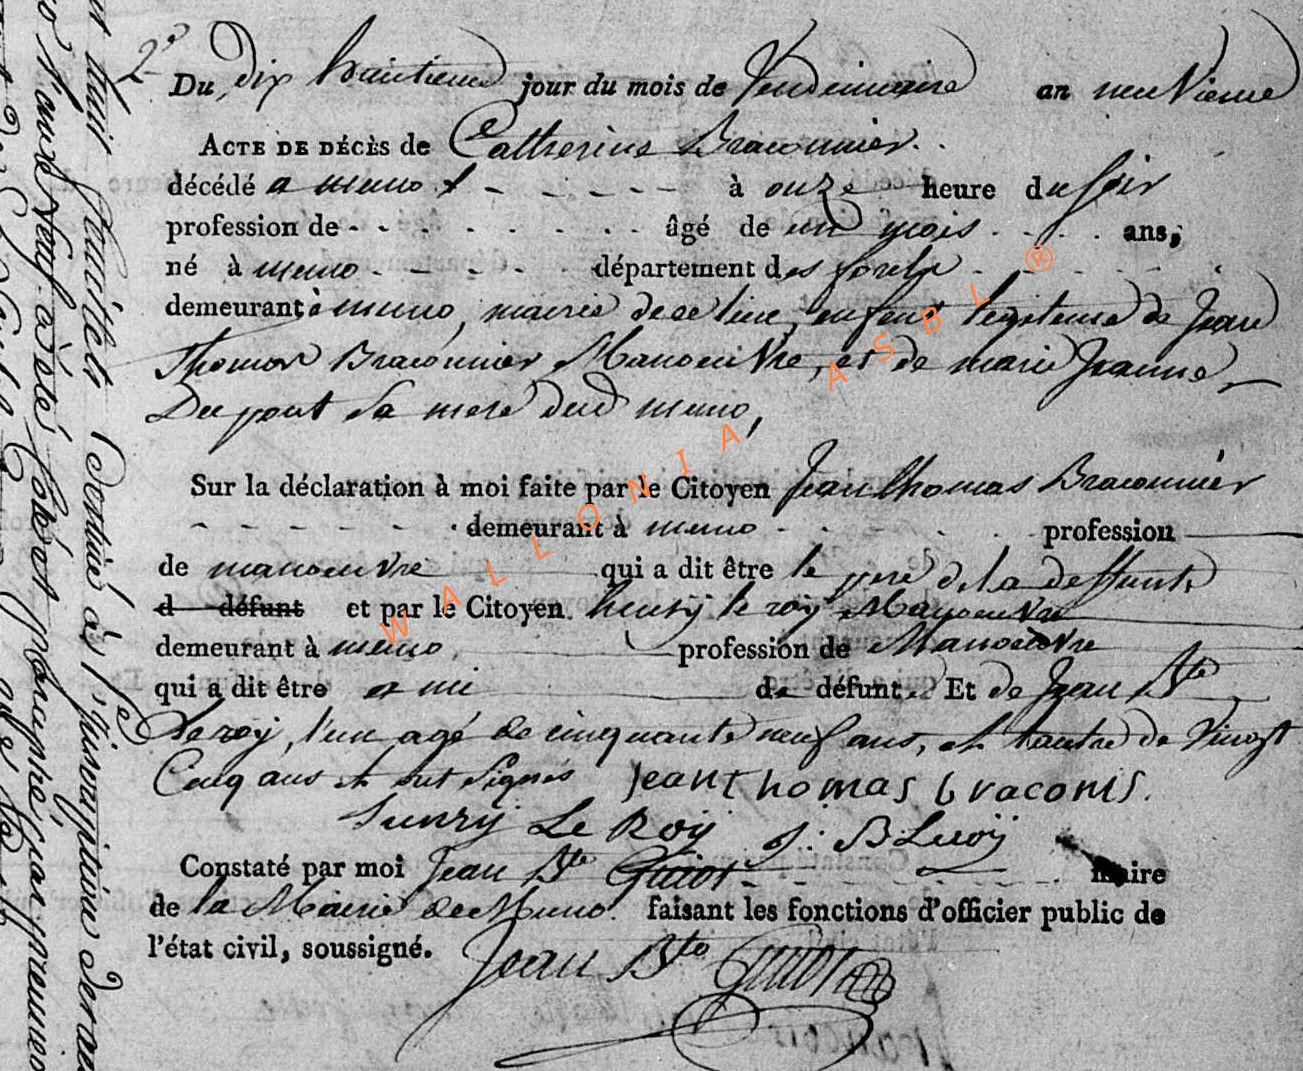 2e
Du dix huitieme jour du mois de Vendemiaire an neuvieme
ACTE DE DÉCÈS de Catherine Braconnier
décédé a muno à onze heure du soir
profession de âgé de un mois ans,
né à muno département des forets
demeurant à muno, mairie de ce lieu, enfant legitime de Jean
Thomas Braconnier Manoeuvre, et de marie Jeanne
Dupont Sa mere dud muno,
Sur la déclaration à moi faite par le Citoyen Jean thomas Braconnier
demeurant à muno profession
de manoeuvre qui a dit être le pere de la deffunte
d défunt et par le Citoyen henry le roy Manoeuvre
demeurant à muno profession de Manoeuvre
qui a dit être ami de défunt Et de Jean Bte
Leroy, l'un agé de cinquante neuf ans, et l'autre de Vingt
Cinq ans et ont Signés Jean thomas braconis.
henry Le Roy J: B Leroÿ
Constaté par moi Jean Bte Guiot maire
de la Mairie de Muno. faisant les fonctions d'officier public de
l'état civil, soussigné.
Jean Bte Guiot
WALLONIA ASBL ®